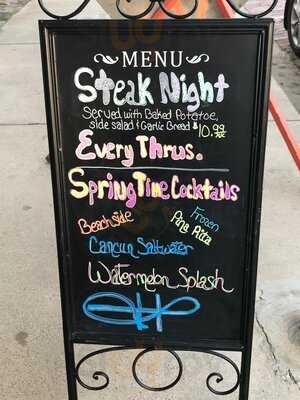 MENU
Steak Night
Served with Baked Potatoe,
side salad & Garlic Bread $10.99
Every Thurs.
SpringTime Cocktails
Beachside
Frozen
Pina Ritta
Cancun Saltwater
Watermelon Splash